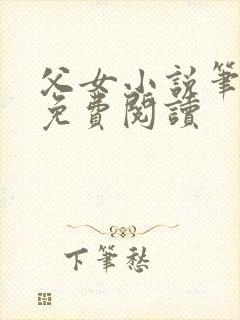 父女小说筆
免費閱讀
下筆愁